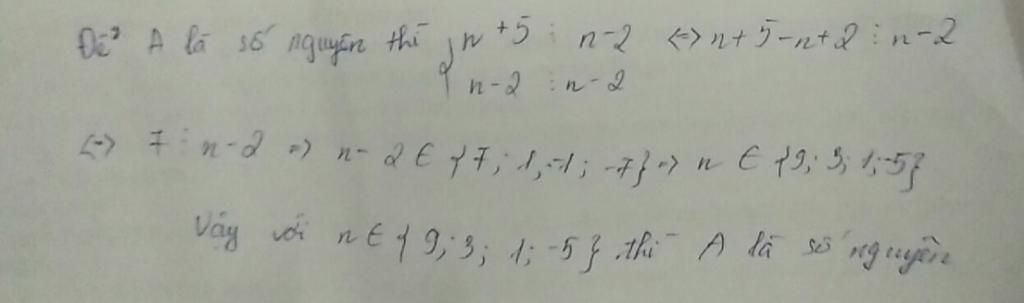 Để A là số nguyên thì { n+5 ⋮ n-2 <=> n+5-n+2 ⋮ n-2
n-2 ⋮ n-2
<=> 7 ⋮ n-2 => n-2 ∈ {7; 1; -1; -7} => n ∈ {9; 3; 1; -5}
Vậy với n ∈ {9; 3; 1; -5} thì A là số nguyên